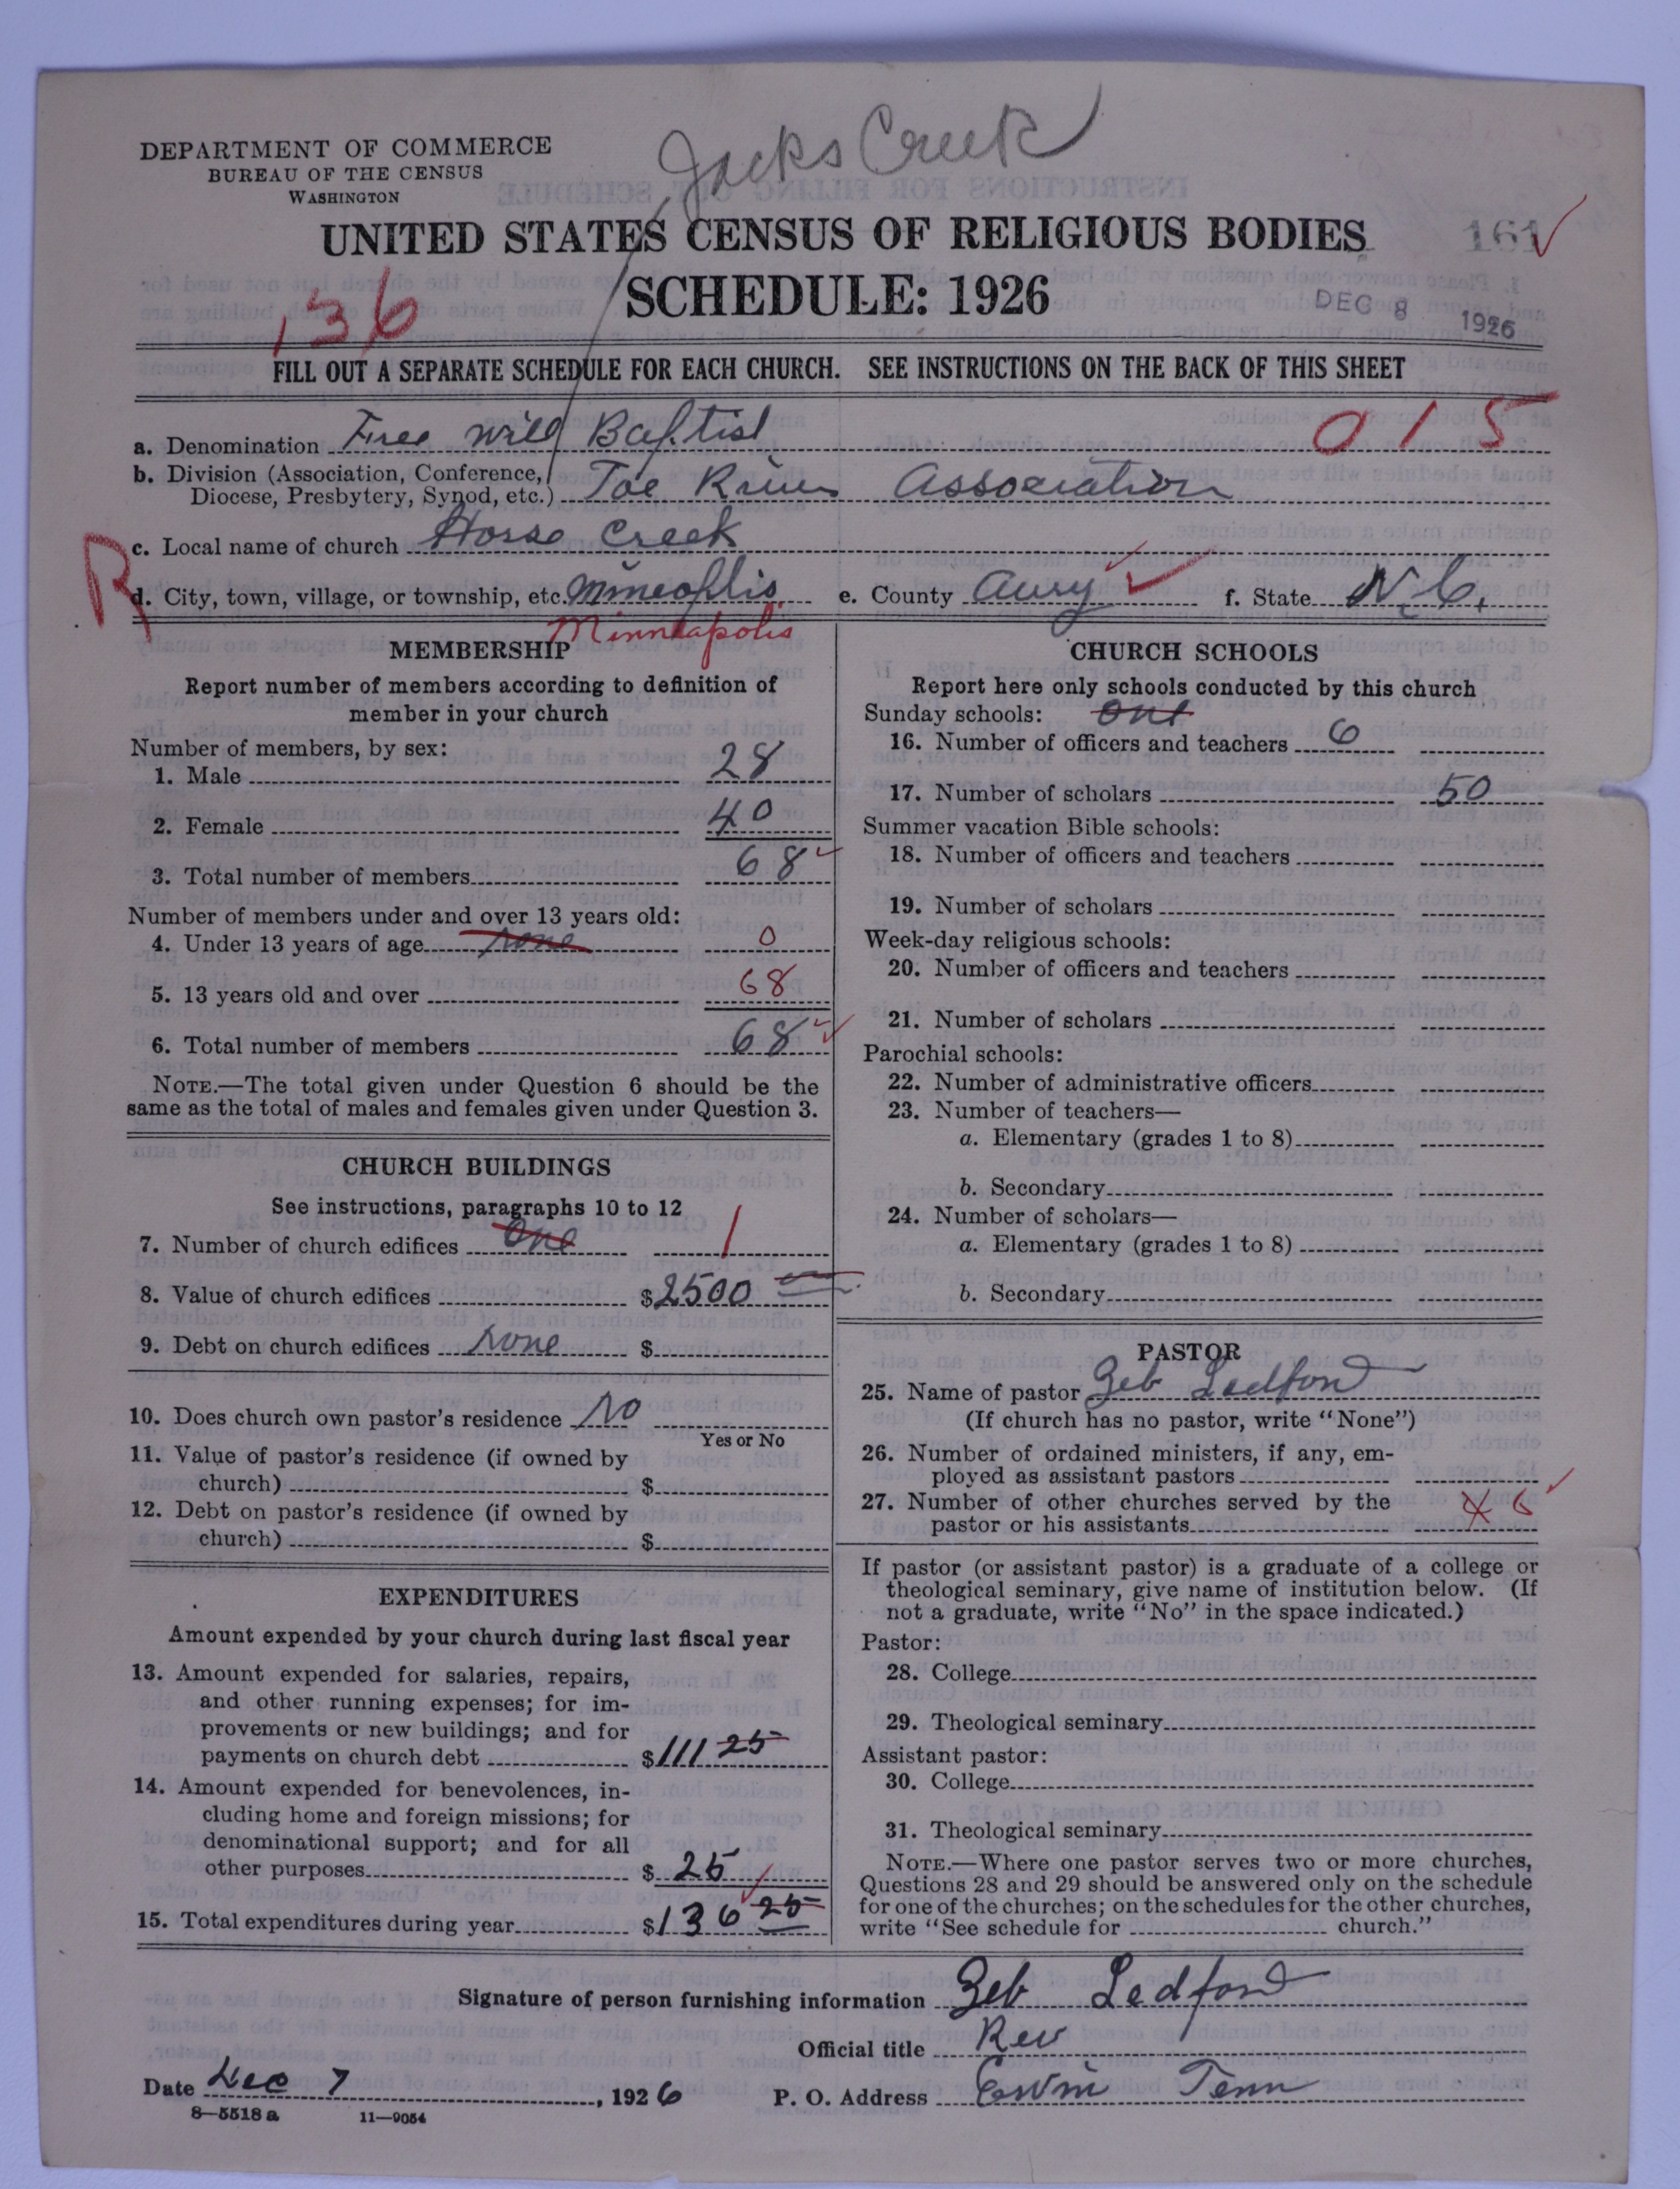 Jacks Creek
DEPARTMENT OF COMMERCE
BUREAU OF THE CENSUS
WASHINGTON
UNITED STATES CENSUS OF RELIGIOUS BODIES
161
SCHEDULE: 1926
136
DEC 8 1926
FILL OUT A SEPARATE SCHEDULE FOR EACH CHURCH. SEE INSTRUCTIONS ON THE BACK OF THIS SHEET
015
a. Denomination Free will Baptist
b. Division (Association, Conference,
Diocese, Presbytery, Synod, etc.) Toe River Association
c. Local name of church Horse Creek
R
d. City, town, village, or township, etc. Mineoplis e. County Avery f. State N.C.
Minneapolis
MEMBERSHIP
Report number of members according to definition of
member in your church
Number of members, by sex:
1. Male 28
2. Female 40
3. Total number of members 68
Number of members under and over 13 years old:
4. Under 13 years of age none 0
5. 13 years old and over 68
6. Total number of members 68
NOTE.—The total given under Question 6 should be the
same as the total of males and females given under Question 3.
CHURCH BUILDINGS
See instructions, paragraphs 10 to 12
7. Number of church edifices one 1
8. Value of church edifices $2500
9. Debt on church edifices none $
10. Does church own pastor's residence No
Yes or No
11. Value of pastor's residence (if owned by
church) $
12. Debt on pastor's residence (if owned by
church) $
EXPENDITURES
Amount expended by your church during last fiscal year
13. Amount expended for salaries, repairs,
and other running expenses; for im-
provements or new buildings; and for
payments on church debt $111 25
14. Amount expended for benevolences, in-
cluding home and foreign missions; for
denominational support; and for all
other purposes $ 25
15. Total expenditures during year $136 25
CHURCH SCHOOLS
Report here only schools conducted by this church
Sunday schools: one
16. Number of officers and teachers 6
17. Number of scholars 50
Summer vacation Bible schools:
18. Number of officers and teachers
19. Number of scholars
Week-day religious schools:
20. Number of officers and teachers
21. Number of scholars
Parochial schools:
22. Number of administrative officers
23. Number of teachers—
a. Elementary (grades 1 to 8)
b. Secondary
24. Number of scholars—
a. Elementary (grades 1 to 8)
b. Secondary
PASTOR
25. Name of pastor Zeb Ledford
(If church has no pastor, write "None")
26. Number of ordained ministers, if any, em-
ployed as assistant pastors
27. Number of other churches served by the
pastor or his assistants 6
If pastor (or assistant pastor) is a graduate of a college or
theological seminary, give name of institution below. (If
not a graduate, write "No" in the space indicated.)
Pastor:
28. College
29. Theological seminary
Assistant pastor:
30. College
31. Theological seminary
NOTE.—Where one pastor serves two or more churches,
Questions 28 and 29 should be answered only on the schedule
for one of the churches; on the schedules for the other churches,
write "See schedule for church."
Signature of person furnishing information Zeb Ledford
Official title Rev
Date Dec 7, 1926 P. O. Address Erwin Tenn
8—5518 a 11—9054